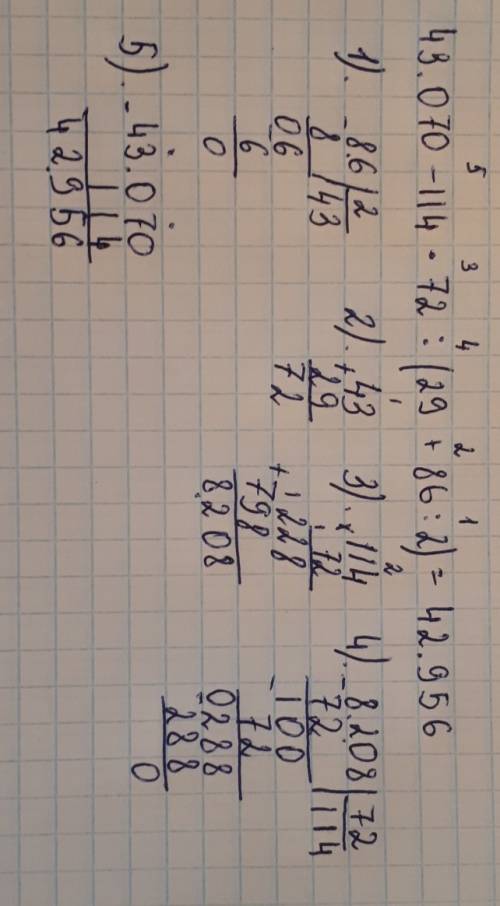 5 3 4 2 1
43.070 - 114 · 72 : (29 + 86 : 2) = 42.956
1). - 8.6 | 2
8 | 43
06
6
0
2). + 43
29
72
3). × 114
72
+ 228
798
8.208
4). - 8.208 | 72
72 | 114
- 100
72
- 0288
288
0
5). - 43.070
114
42.956